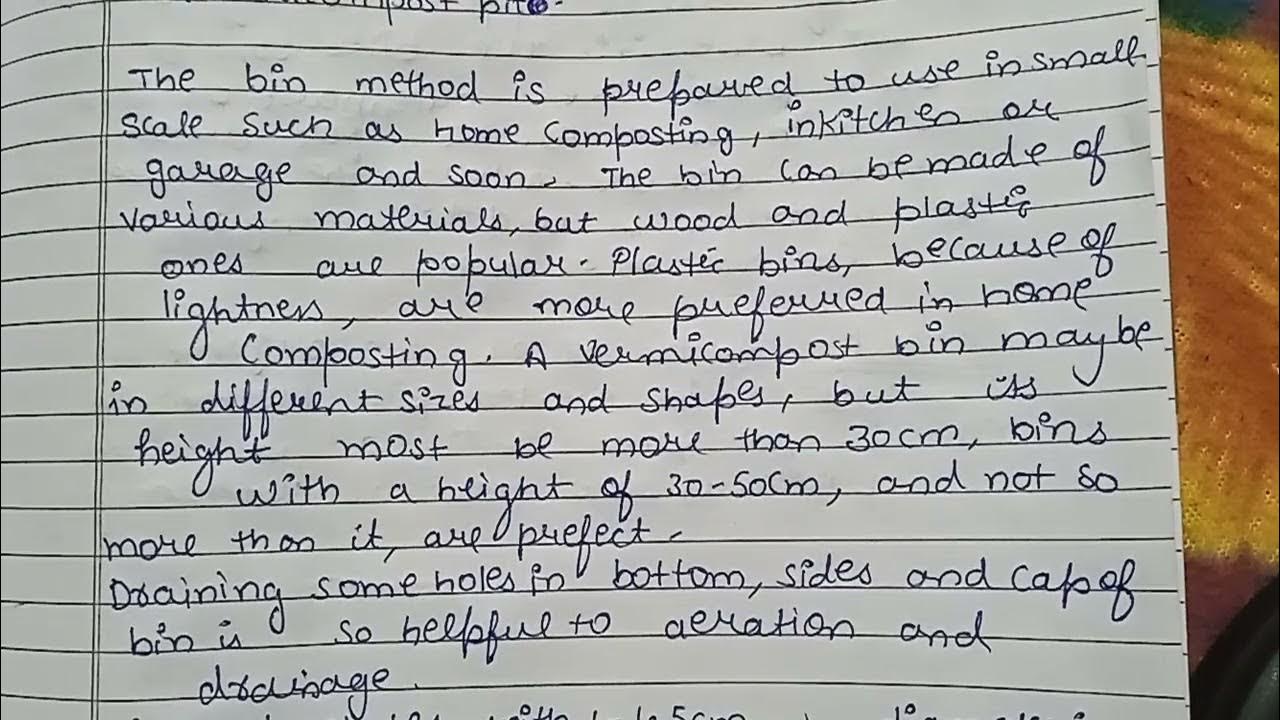 compost pits.
The bin method is prepared to use in small
scale such as home composting, inkitchen or
garage and soon. The bin can be made of
various materials, but wood and plastic
ones are popular. Plastic bins, because of
lightness, are more preferred in home
Composting. A vermicompost bin may be
in different sizes and shapes, but its
height most be more than 30cm, bins
with a height of 30-50cm, and not so
more than it, are prefect.
Draining some holes in bottom, sides and cap of
bin is so helpful to aeration and
drainage.